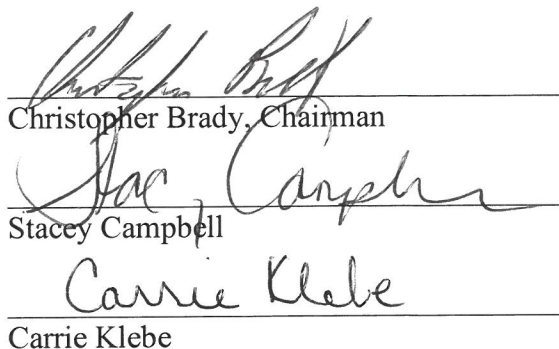 Christopher Brady
Christopher Brady, Chairman
Stacey Campbell
Stacey Campbell
Carrie Klebe
Carrie Klebe